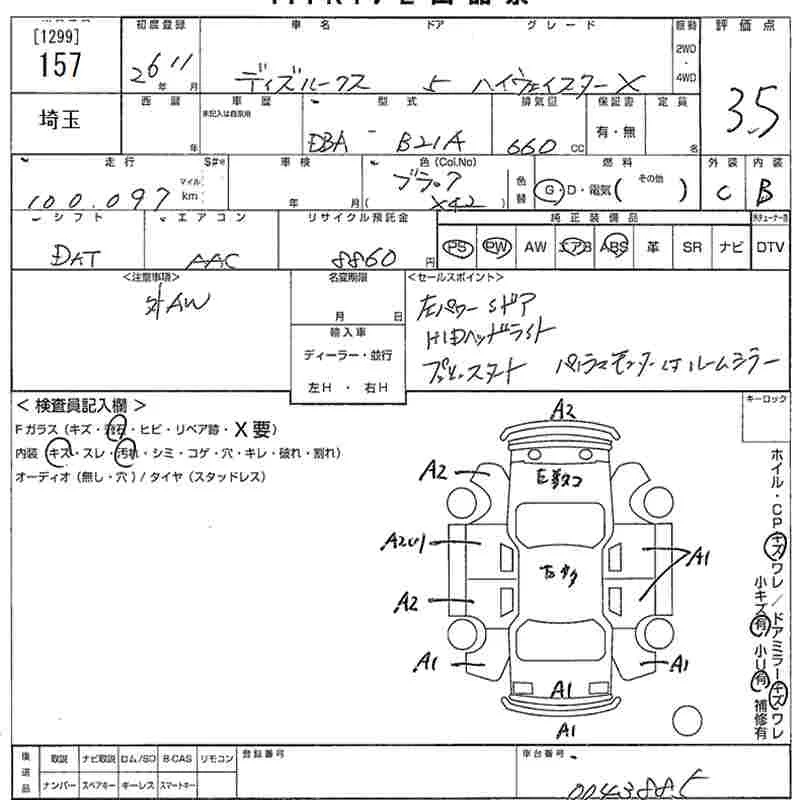 [1299]
157
埼玉
初度登録
26 11
年 月
車名
ディズルークス
ドア
5
グレード
ハイウェイスターX
駆動
2WD
・
4WD
評価点
3.5
西暦
年
車歴
未記入は自家用
型式
DBA - B21A
排気量
660 cc
保証書
有・無
定員
名
走行
100.097
マイル
km
S#*
車検
年 月
色(Col,No)
ブラック
( X42 )
色替
燃料
G・D・電気( その他 )
外装
C
内装
B
シフト
DAT
エアコン
AAC
リサイクル預託金
8860 円
純正装備品
PS PW AW エアB ABS 革 SR ナビ DTV
<注意事項>
外AW
名変期限
月 日
輸入車
ディーラー・並行
左H ・ 右H
<セールスポイント>
左パワーSドア
HIDヘッドライト
プッシュスタート パノラマモニターはルームミラー
<検査員記入欄>
Fガラス(キズ・飛石・ヒビ・リペア跡・X要)
内装(キズ・スレ・汚れ・シミ・コゲ・穴・キレ・破れ・割れ)
オーディオ(無し・穴)/タイヤ(スタッドレス)
キーロック
A2
A2
A2U1
A2
A1
A1
A1
A1
A1
ホイル・CPキズワレ/ドアミラーキズワレ
小キズ有 小U有 補修有
後送品
取説 ナビ取説 ロム/SD B-CAS リモコン
ナンバー スペアキー キーレス スマートキー
登録番号
車台番号
0043885